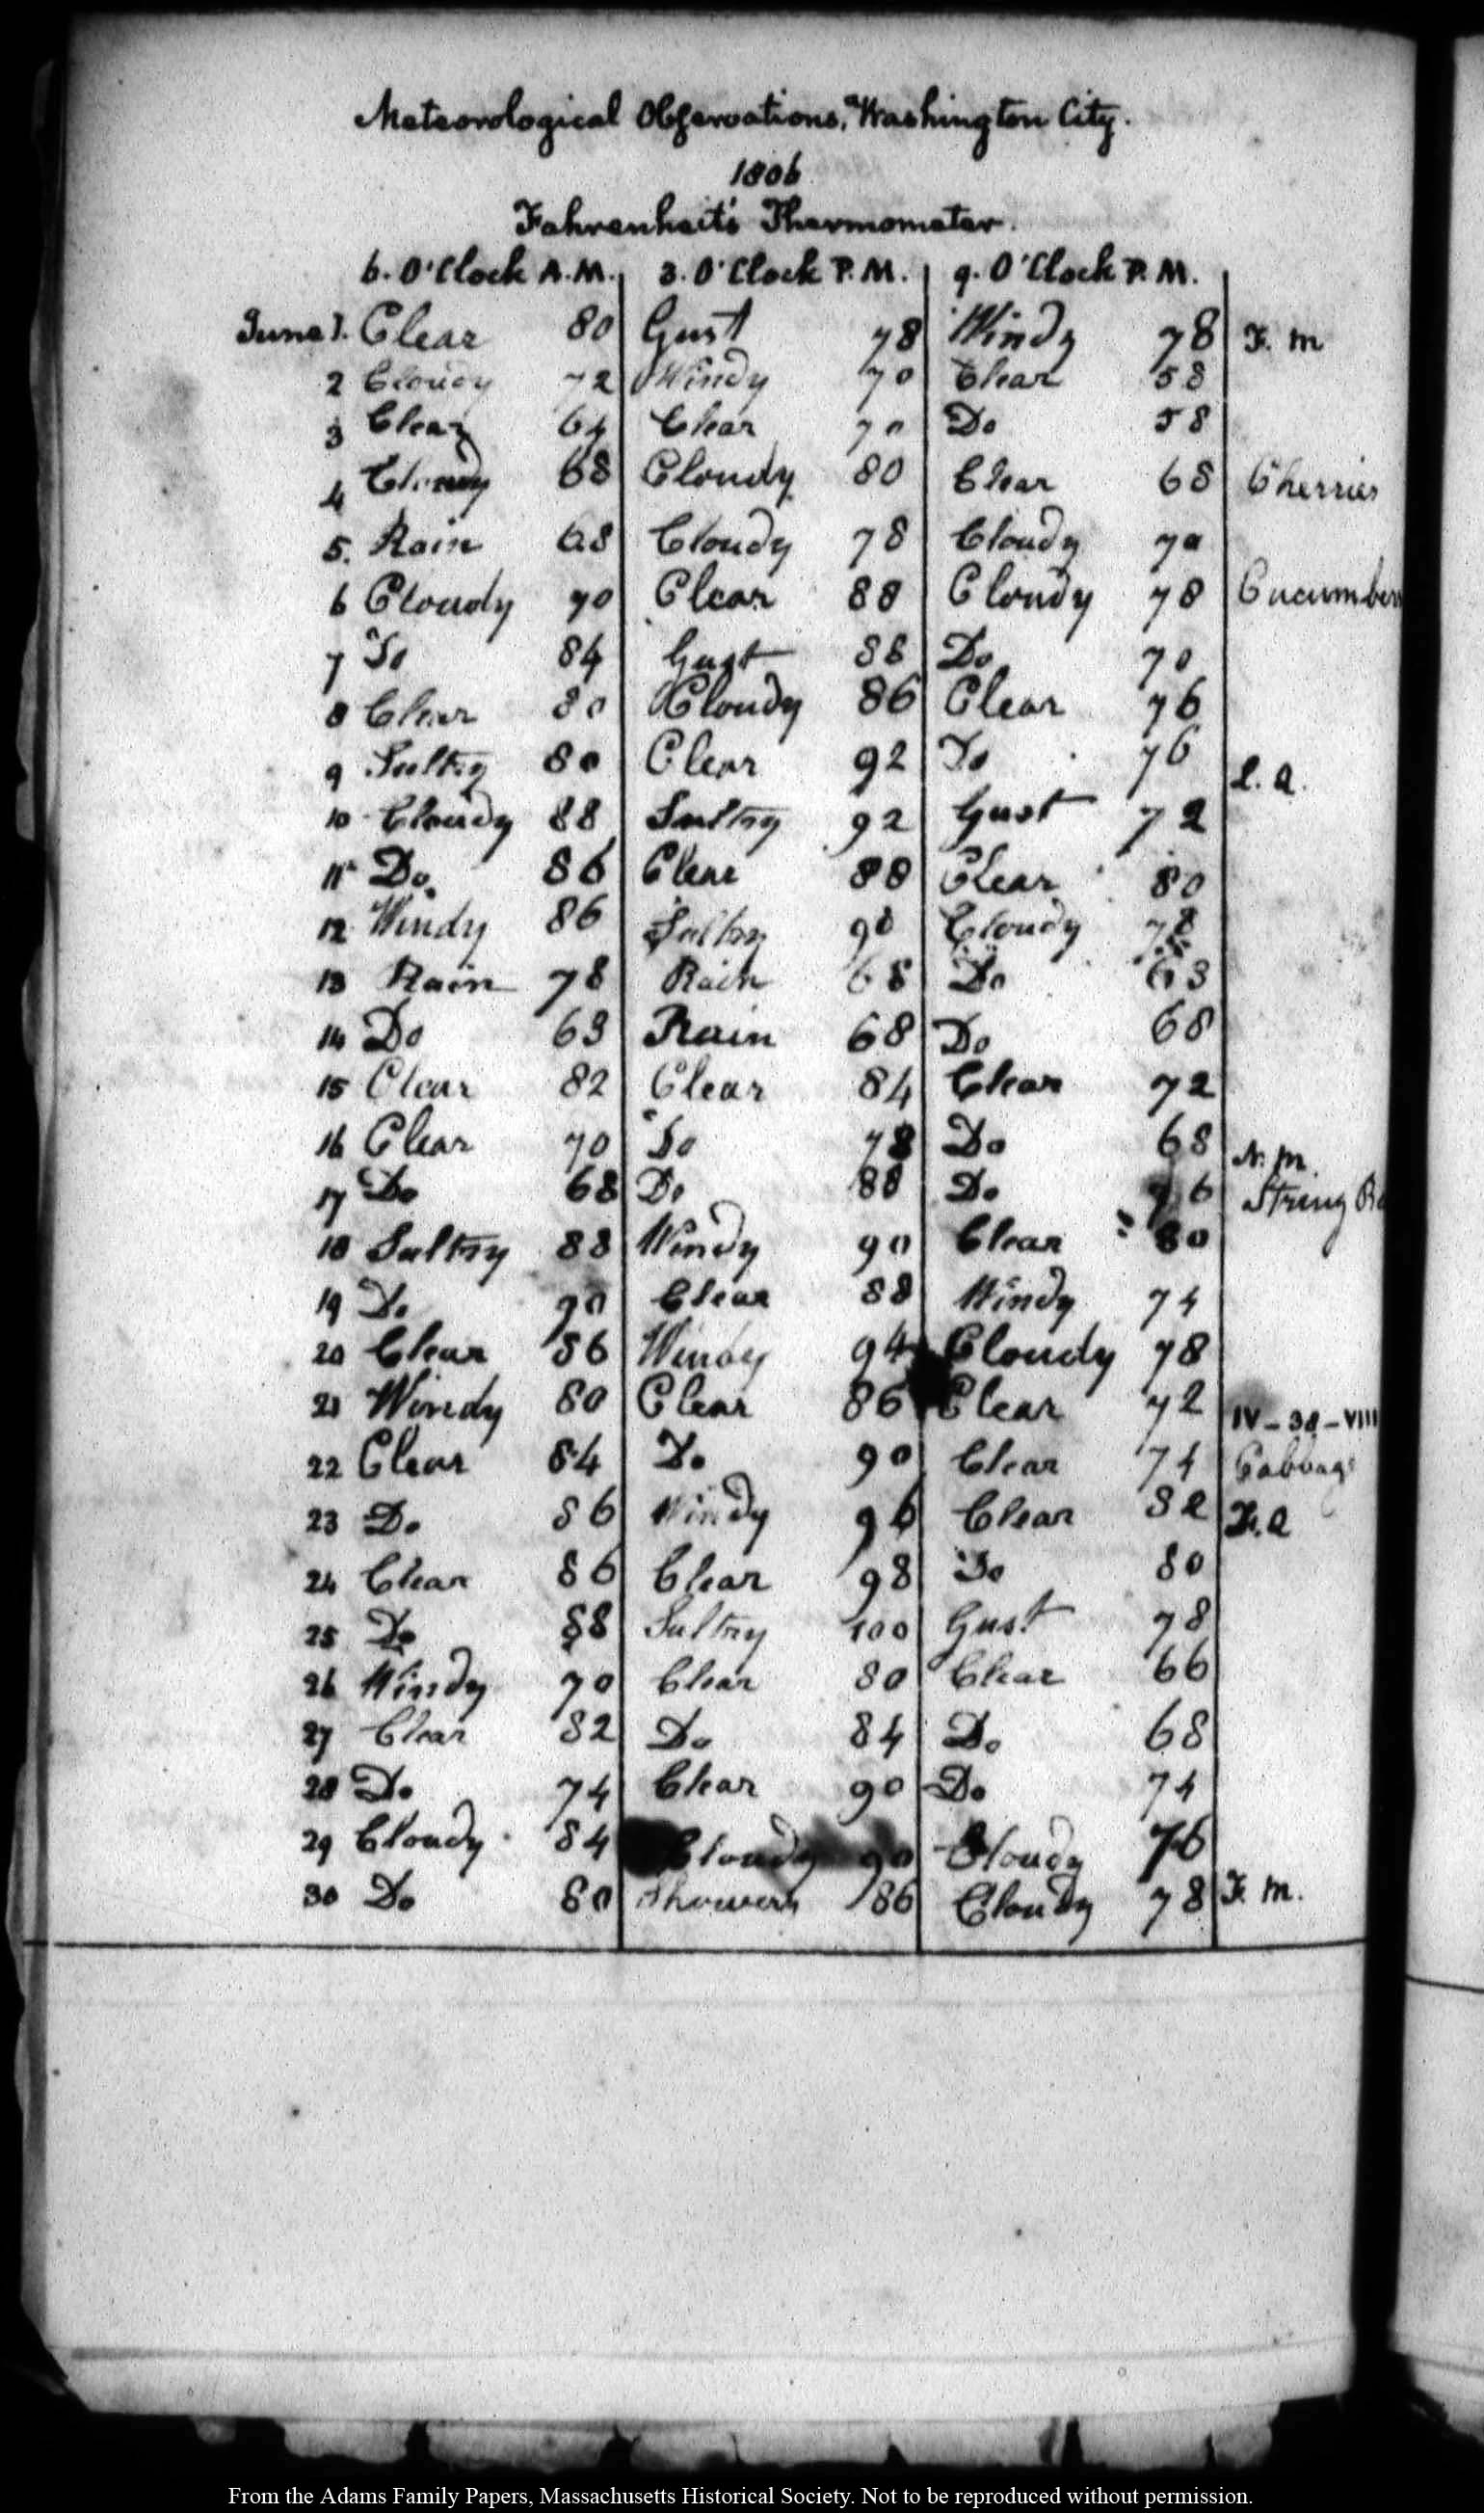 Meteorological Observations, Washington City.
1806
Fahrenheit's Thermometer.
6. O'Clock A.M. 3. O'Clock P.M. 9. O'Clock P.M.
June 1. Clear 80 Gust 78 Windy 78 F. m
2 Cloudy 72 Windy 70 Clear 58
3 Clear 64 Clear 70 Do 58
4 Cloudy 68 Cloudy 80 Clear 68 Cherries
5. Rain 68 Cloudy 78 Cloudy 70
6 Cloudy 70 Clear 88 Cloudy 78 Cucumbers
7 Do 84 Gust 88 Do 70
8 Clear 80 Cloudy 86 Clear 76
9 Sultry 80 Clear 92 Do 76 L. Q.
10 Cloudy 88 Sultry 92 Gust 72
11 Do. 86 Clear 88 Clear 80
12 Windy 86 Sultry 90 Cloudy 78
13 Rain 78 Rain 68 Do 63
14 Do 63 Rain 68 Do 68
15 Clear 82 Clear 84 Clear 72
16 Clear 70 Do 78 Do 68 N. m.
17 Do 68 Do 88 Do 76 String
18 Sultry 88 Windy 90 Clear 80
19 Do 90 Clear 88 Windy 74
20 Clear 86 Windy 94 Cloudy 78
21 Windy 80 Clear 86 Clear 72 IV-38-VIII
22 Clear 84 Do 90 Clear 74 Cabbage
23 Do 86 Windy 96 Clear 82 F. Q
24 Clear 86 Clear 98 Do 80
25 Do 88 Sultry 100 Gust 78
26 Windy 70 Clear 80 Clear 66
27 Clear 82 Do 84 Do 68
28 Do 74 Clear 90 Do 74
29 Cloudy 84 Cloudy 90 Cloudy 76
30 Do 80 Showery 86 Cloudy 78 F. m.
From the Adams Family Papers, Massachusetts Historical Society. Not to be reproduced without permission.